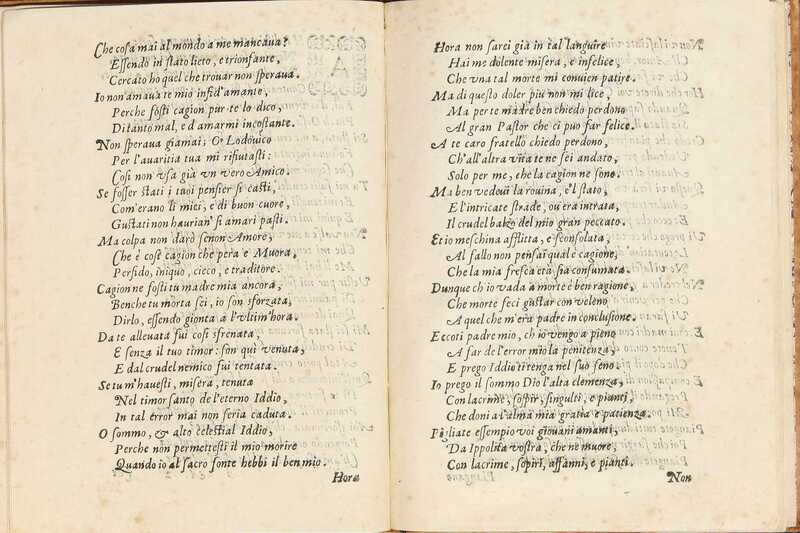 Che cosa mai al mondo a me mancaua?
Essendo in stato lieto, e trionfante,
Cercato ho quel che trouar non speraua.
Io non amaua te mio infid'amante,
Perche fosti cagion pur te lo dico,
Di tanto mal, e d amarmi incostante.
Non speraua giamai; O Lodouico
Per l'auaritia tua mi rifiutasti:
Cosi non vsa già vn vero Amico.
Se fosser stati i tuoi pensier sì casti,
Com'erano li miei, e di buon cuore,
Gustati non haurian' sì amari pasti.
Ma colpa non darò senon Amore,
Che è cosi cagion che pera e Muora,
Perfido, iniquo, cieco, e traditore.
Cagion ne fosti tu madre mia ancora,
Benche tu morta sei, io son sforzata,
Dirlo, essendo gionta a l'vltim'hora.
Da te alleuata fui cosi sfrenata,
E senza il tuo timor: son quì venuta,
E dal crudel nemico fui tentata.
Se tu m'hauesti, misera, tenuta
Nel timor santo de l'eterno Iddio,
In tal error mai non seria caduta.
O sommo, & alto celestial Iddio,
Perche non permettesti il mio morire
Quando io al sacro fonte hebbi il ben mio.
Hora
Hora non sarei già in tal languire
Hai me dolente misera, e infelice,
Che vna tal morte mi conuien patire.
Ma di questo doler più non mi lice,
Ma per te madre ben chiedo perdono
Al gran Pastor che ci può far felice.
A te caro fratello chiedo perdono,
Ch'all'altra vita te ne sei andato,
Solo per me, che la cagion ne sono.
Ma ben vedeui la rouina, e'l stato,
E l'intricate strade, ou'era intrata,
Il crudel del mio gran peccato.
Et io meschina afflitta, e sconsolata,
Al fallo non pensai qual è cagione,
Che la mia fresca età sia consumata.
Dunque ch io vada a morte è ben ragione,
Che morte feci gustar con veleno
A quel che m'era padre in conclusione.
Eccoti padre mio, ch io vengo a pieno
A far de l'error mio la penitenza,
E prego Iddio ti tenga nel suo seno.
Io prego il sommo Dio l'alta clemenza,
Con lacrime, sospir, singulti, e pianti,
Che doni a l'alma mia gratia e patienza.
Pigliate essempio voi giouani amanti,
Da Ippolita vostra, che ne muore,
Con lacrime, sospiri, affanni, e pianti.
Non